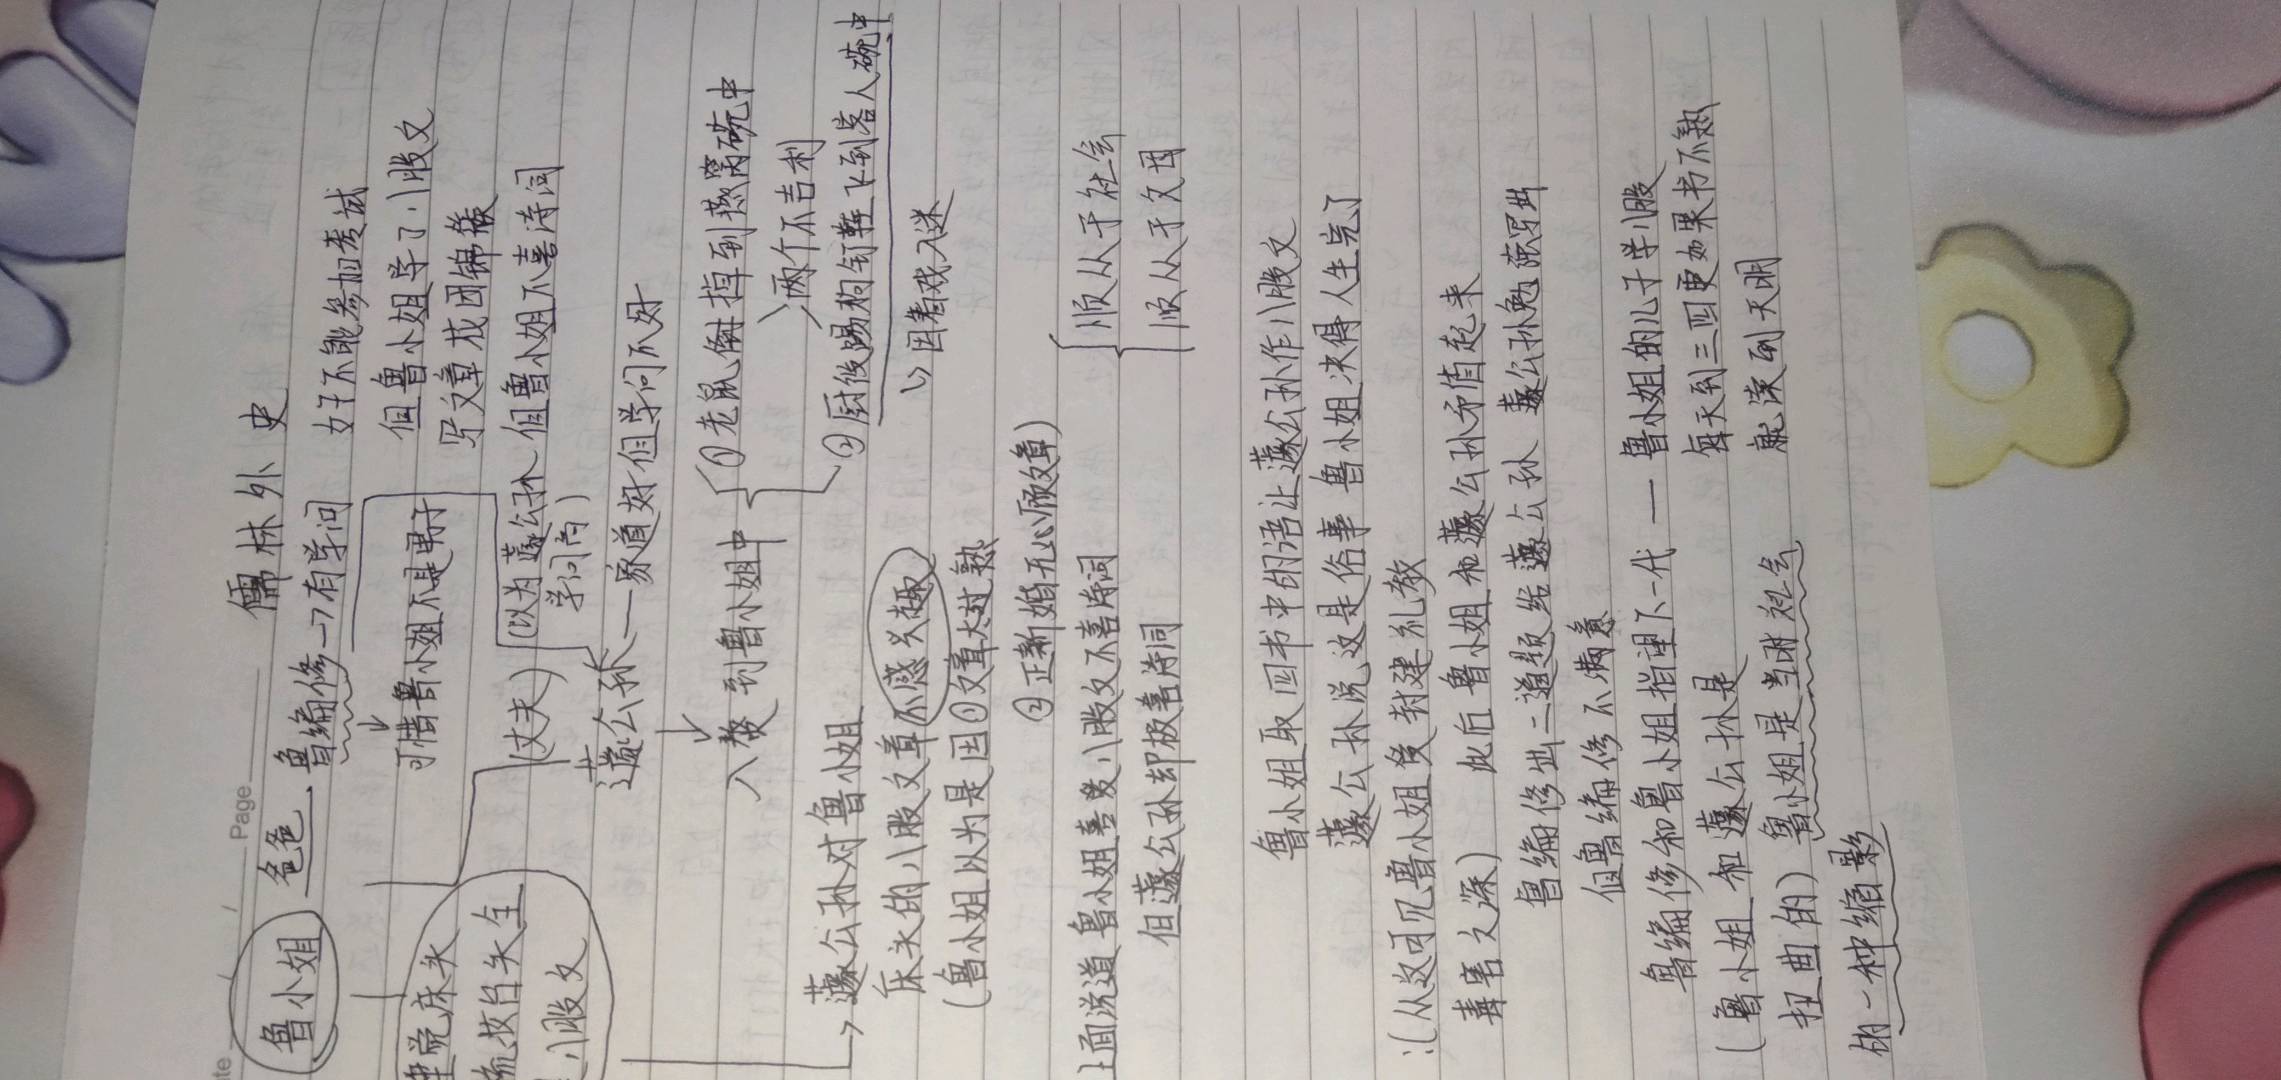 Page
儒林外史
鲁小姐 爸爸、鲁编修→有学问 女子不能参加考试
可惜鲁小姐不是男子 但鲁小姐学了八股文
写文章花团锦簇
睡觉床头
梳妆台头全
八股文
(丈夫) (以为蘧公孙学问高) 但鲁小姐不喜诗词
蘧公孙—家道好但学问不好
入赘到鲁小姐中 ①老鼠掉到燕窝碗中
两个不吉利
②厨役踢狗钉鞋飞到客人碗中
↳因看戏入迷
蘧公孙对鲁小姐
床头的八股文章不感兴趣
(鲁小姐以为是因①文章太过熟
②正新婚无心顾文章)
上面说道鲁小姐喜爱八股文不喜诗词 顺从于社会
但蘧公孙却极喜诗词 顺从于父因
鲁小姐取四书中的语让蘧公孙作八股文
蘧公孙说这是俗事 鲁小姐决得人生完了
:(从这可见鲁小姐受封建礼教
毒害之深) 此后鲁小姐和蘧公孙矛值起来
鲁编修出二道题给蘧公孙 蘧公孙勉强写出
但鲁编修不满意
鲁编修和鲁小姐指望下一代—鲁小姐的儿子学八股
(鲁小姐和蘧公孙是 每天到三四更如果书不熟
扭曲的) 鲁小姐是当时社会 就读到天明
的一种缩影